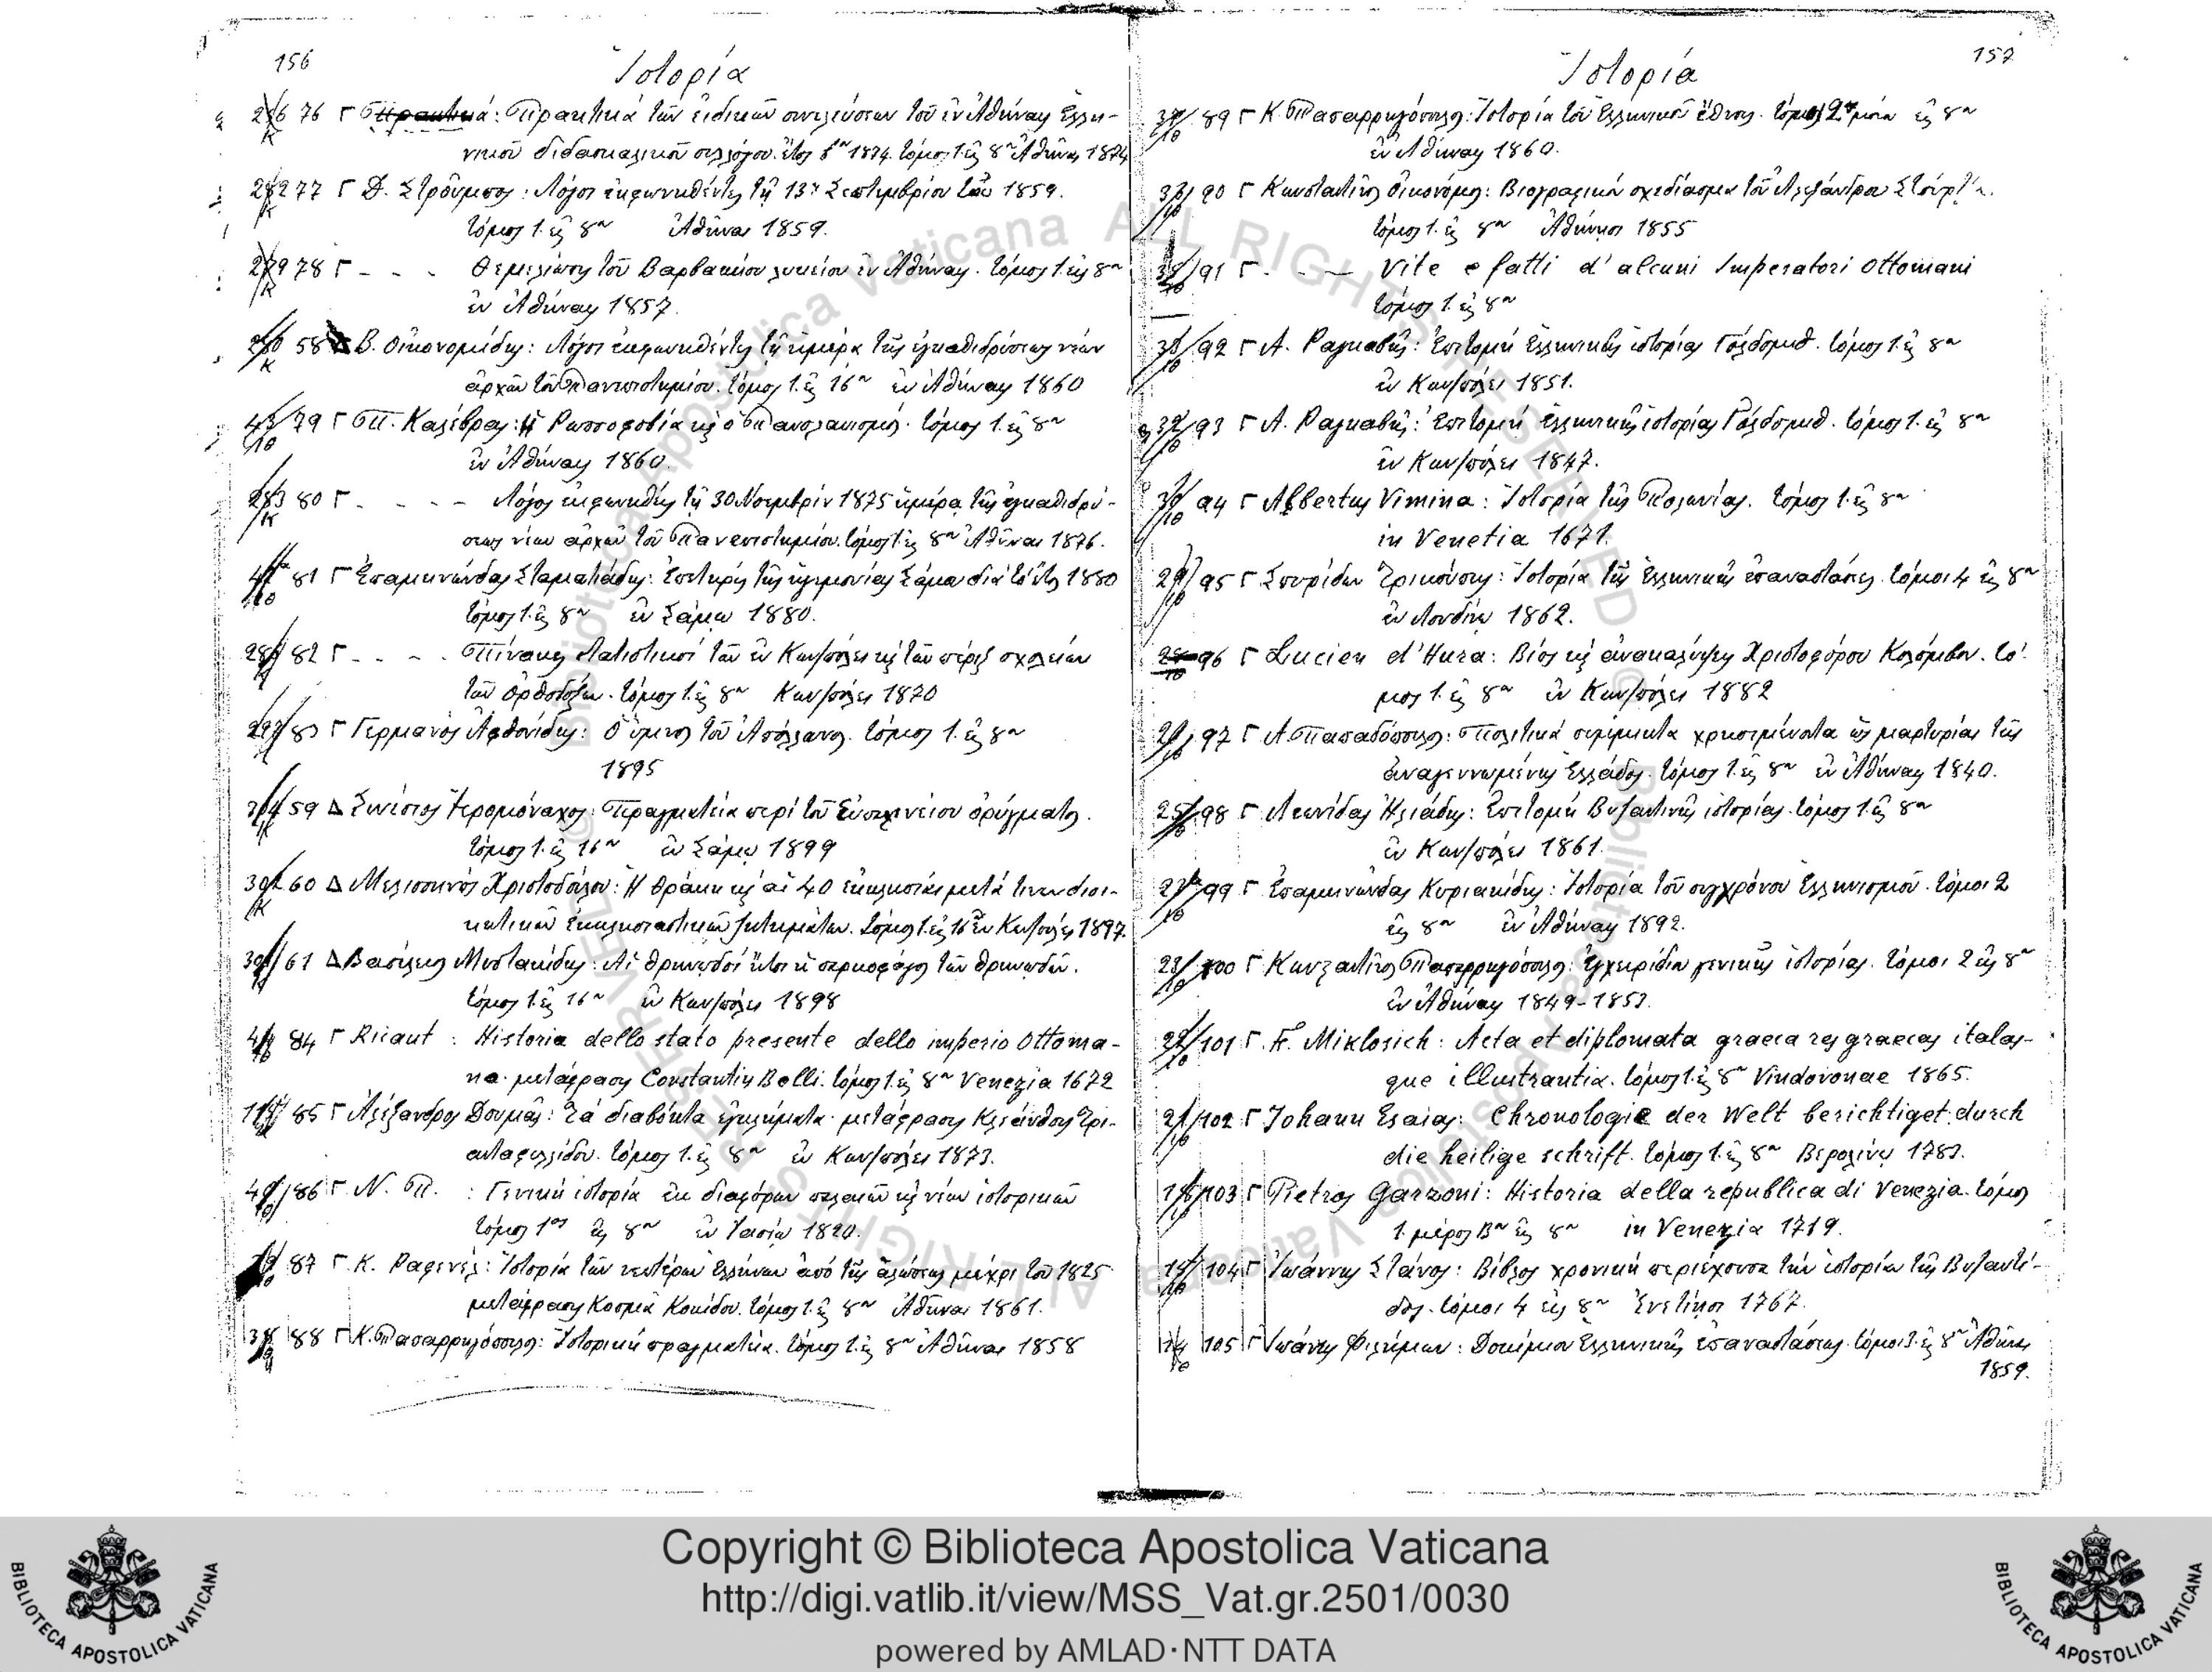 156
Ἱστορία
76 Γ Πρακτικά: Πρακτικὰ τῶν εἰδικῶν συνελεύσεων τοῦ ἐν Ἀθήναις Ἑλλη-
νικοῦ διδασκαλικοῦ συλλόγου. ἔτος 1874. τόμος 1. εἰς 8ον Ἀθῆναι 1874
77 Γ Δ. Στρούμπος: Λόγοι ἐκφωνηθέντες τῇ 13ῃ Σεπτεμβρίου τοῦ 1859.
τόμος 1. εἰς 8ον Ἀθῆναι 1859.
78 Γ - - - Θεμελίωσις τοῦ Βαρβακείου λυκείου ἐν Ἀθήναις. τόμος 1. εἰς 8ον
ἐν Ἀθήναις 1857.
58 Δ Β. Οἰκονομίδης: Λόγοι ἐκφωνηθέντες τῇ ἡμέρᾳ τῆς ἐγκαθιδρύσεως νέων
ἀρχῶν τοῦ Πανεπιστημίου. τόμος 1. εἰς 16ον ἐν Ἀθήναις 1860
79 Γ Π. Καλέβρας: Ἡ Ρωσσοφοβία κὶ ὁ Πανσλαυισμός. τόμος 1. εἰς 8ον
ἐν Ἀθήναις 1860.
80 Γ - - - - Λόγος ἐκφωνηθεὶς τῇ 30 Νοεμβρίου 1875 ἡμέρᾳ τῆς ἐγκαθιδρύ-
σεως νέων ἀρχῶν τοῦ Πανεπιστημίου. τόμος 1. εἰς 8ον Ἀθῆναι 1876.
81 Γ Ἐπαμινώνδας Σταματιάδης: Ἐπετηρὶς τῆς ἡγεμονίας Σάμου διὰ τὸ ἔτος 1880
τόμος 1. εἰς 8ον ἐν Σάμῳ 1880.
82 Γ - - - - Πίνακες στατιστικοὶ τῶν ἐν Κων/πόλει κὶ τῶν πέριξ σχολείων
τῶν ὀρθοδόξων. τόμος 1. εἰς 8ον Κων/πόλει 1870
83 Γ Γερμανὸς Ἀφθονίδης: Ὁ ὕμνος τοῦ Ἀπόλλωνος. τόμος 1. εἰς 8ον
1895
59 Δ Συνέσιος Ἱερομόναχος: Πραγματεία περὶ τοῦ Εὐπαλινείου ὀρύγματος.
τόμος 1. εἰς 16ον ἐν Σάμῳ 1899
60 Δ Μελισσηνὸς Χριστοδούλου: Ἡ Θράκη κὶ αἱ 40 ἐκκλησίαι μετά τινων διοι-
κητικῶν ἐκκλησιαστικῶν ζητημάτων. τόμος 1. εἰς 16ον ἐν Κων/πόλει 1897.
61 Δ Βασίλειος Μυστακίδης: Αἱ θρηνῳδοὶ ἤτοι ἡ σαρκοφάγος τῶν θρηνῳδῶν.
τόμος 1. εἰς 16ον ἐν Κων/πόλει 1898
84 Γ Ricaut : Historia dello stato presente dello imperio Ottoma-
no. μετάφρασις Constantin Belli. τόμος 1. εἰς 8ον Venezia 1672
85 Γ Ἀλέξανδρος Δουμᾶς: Τὰ διαβόητα ἐγκλήματα. μετάφρασις Κλεάνθους Τρι-
ανταφυλλίδου. τόμος 1. εἰς 8ον ἐν Κων/πόλει 1873.
86 Γ Ν. Π. : Γενικὴ ἱστορία ἐκ διαφόρων παλαιῶν κὶ νέων ἱστορικῶν
τόμος 1ος εἰς 8ον ἐν Ἰασίῳ 1820.
87 Γ Κ. Ραφενέλ: Ἱστορία τῶν νεωτέρων Ἑλλήνων ἀπὸ τῆς ἁλώσεως μέχρι τοῦ 1825
μετάφρασις Κοσμᾶ Κοκίδου. τόμος 1. εἰς 8ον Ἀθῆναι 1861.
88 Γ Κ. Παπαρρηγόπουλος: Ἱστορικαὶ πραγματεῖαι. τόμος 1. εἰς 8ον Ἀθῆναι 1858
157
Ἱστορία
89 Γ Κ. Παπαρρηγόπουλος: Ἱστορία τοῦ Ἑλληνικοῦ ἔθνους. εἰς 8ον
ἐν Ἀθήναις 1860.
90 Γ Κωνσταντῖνος Οἰκονόμος: Βιογραφικὸν σχεδίασμα τοῦ Ἀλεξάνδρου Στούρζα.
τόμος 1. εἰς 8ον Ἀθήνησι 1855
91 Γ - - - Vite e fatti d'alcuni Imperatori Ottomani
τόμος 1. εἰς 8ον
92 Γ Α. Ραγκαβῆς: Ἐπιτομὴ Ἑλληνικῆς ἱστορίας Γόλδσμιθ. τόμος 1. εἰς 8ον
ἐν Κων/πόλει 1851.
93 Γ Α. Ραγκαβῆς: Ἐπιτομὴ Ἑλληνικῆς ἱστορίας Γόλδσμιθ. τόμος 1. εἰς 8ον
ἐν Κων/πόλει 1847.
94 Γ Albertus Vimina: Ἱστορία τῆς Πολωνίας. τόμος 1. εἰς 8ον
in Venetia 1671.
95 Γ Σπυρίδων Τρικούπης: Ἱστορία τῆς Ἑλληνικῆς ἐπαναστάσεως. τόμοι 4 εἰς 8ον
ἐν Λονδίνῳ 1862.
96 Γ Lucien d'Hura: Βίος κὶ ἀνακαλύψεις Χριστοφόρου Κολόμβου. τό-
μος 1. εἰς 8ον ἐν Κων/πόλει 1882
97 Γ Α. Παπαδόπουλος: Πολιτικὰ σύμμικτα χρησιμεύοντα ὡς μαρτυρίαι τῆς
ἀναγεννωμένης Ἑλλάδος. τόμος 1. εἰς 8ον ἐν Ἀθήναις 1840.
98 Γ Λεωνίδας Ἡλιάδης: Ἐπιτομὴ Βυζαντινῆς ἱστορίας. τόμος 1. εἰς 8ον
ἐν Κων/πόλει 1861.
99 Γ Ἐπαμινώνδας Κυριακίδης: Ἱστορία τοῦ συγχρόνου Ἑλληνισμοῦ. τόμοι 2
εἰς 8ον ἐν Ἀθήναις 1892.
100 Γ Κωνσταντῖνος Παπαρρηγόπουλος: Ἐγχειρίδιον γενικῆς ἱστορίας. τόμοι 2 εἰς 8ον
ἐν Ἀθήναις 1849-1853.
101 Γ F. Miklosich: Acta et diplomata graeca res graecas italas-
que illustrantia. τόμος 1. εἰς 8ον Vindovonae 1865.
102 Γ Johann Esaias: Chronologie der Welt berichtiget durch
die heilige schrift. τόμος 1. εἰς 8ον Βερολίνῳ 1783.
103 Γ Pietros Garzoni: Historia della republica di Venezia. τόμος
1. μέρος Βον εἰς 8ον in Venezia 1719.
104 Γ Ἰωάννης Στάνος: Βίβλος χρονικὴ περιέχουσα τὴν ἱστορίαν τῆς Βυζαντί-
δος. τόμοι 4 εἰς 8ον Ἐνετίησι 1767.
105 Γ Ἰωάννης Φιλήμων: Δοκίμιον Ἑλληνικῆς ἐπαναστάσεως. τόμοι 3. εἰς 8ον Ἀθῆναι
1859.
Copyright © Biblioteca Apostolica Vaticana
http://digi.vatlib.it/view/MSS_Vat.gr.2501/0030
powered by AMLAD·NTT DATA
BIBLIOTECA APOSTOLICA VATICANA
BIBLIOTECA APOSTOLICA VATICANA